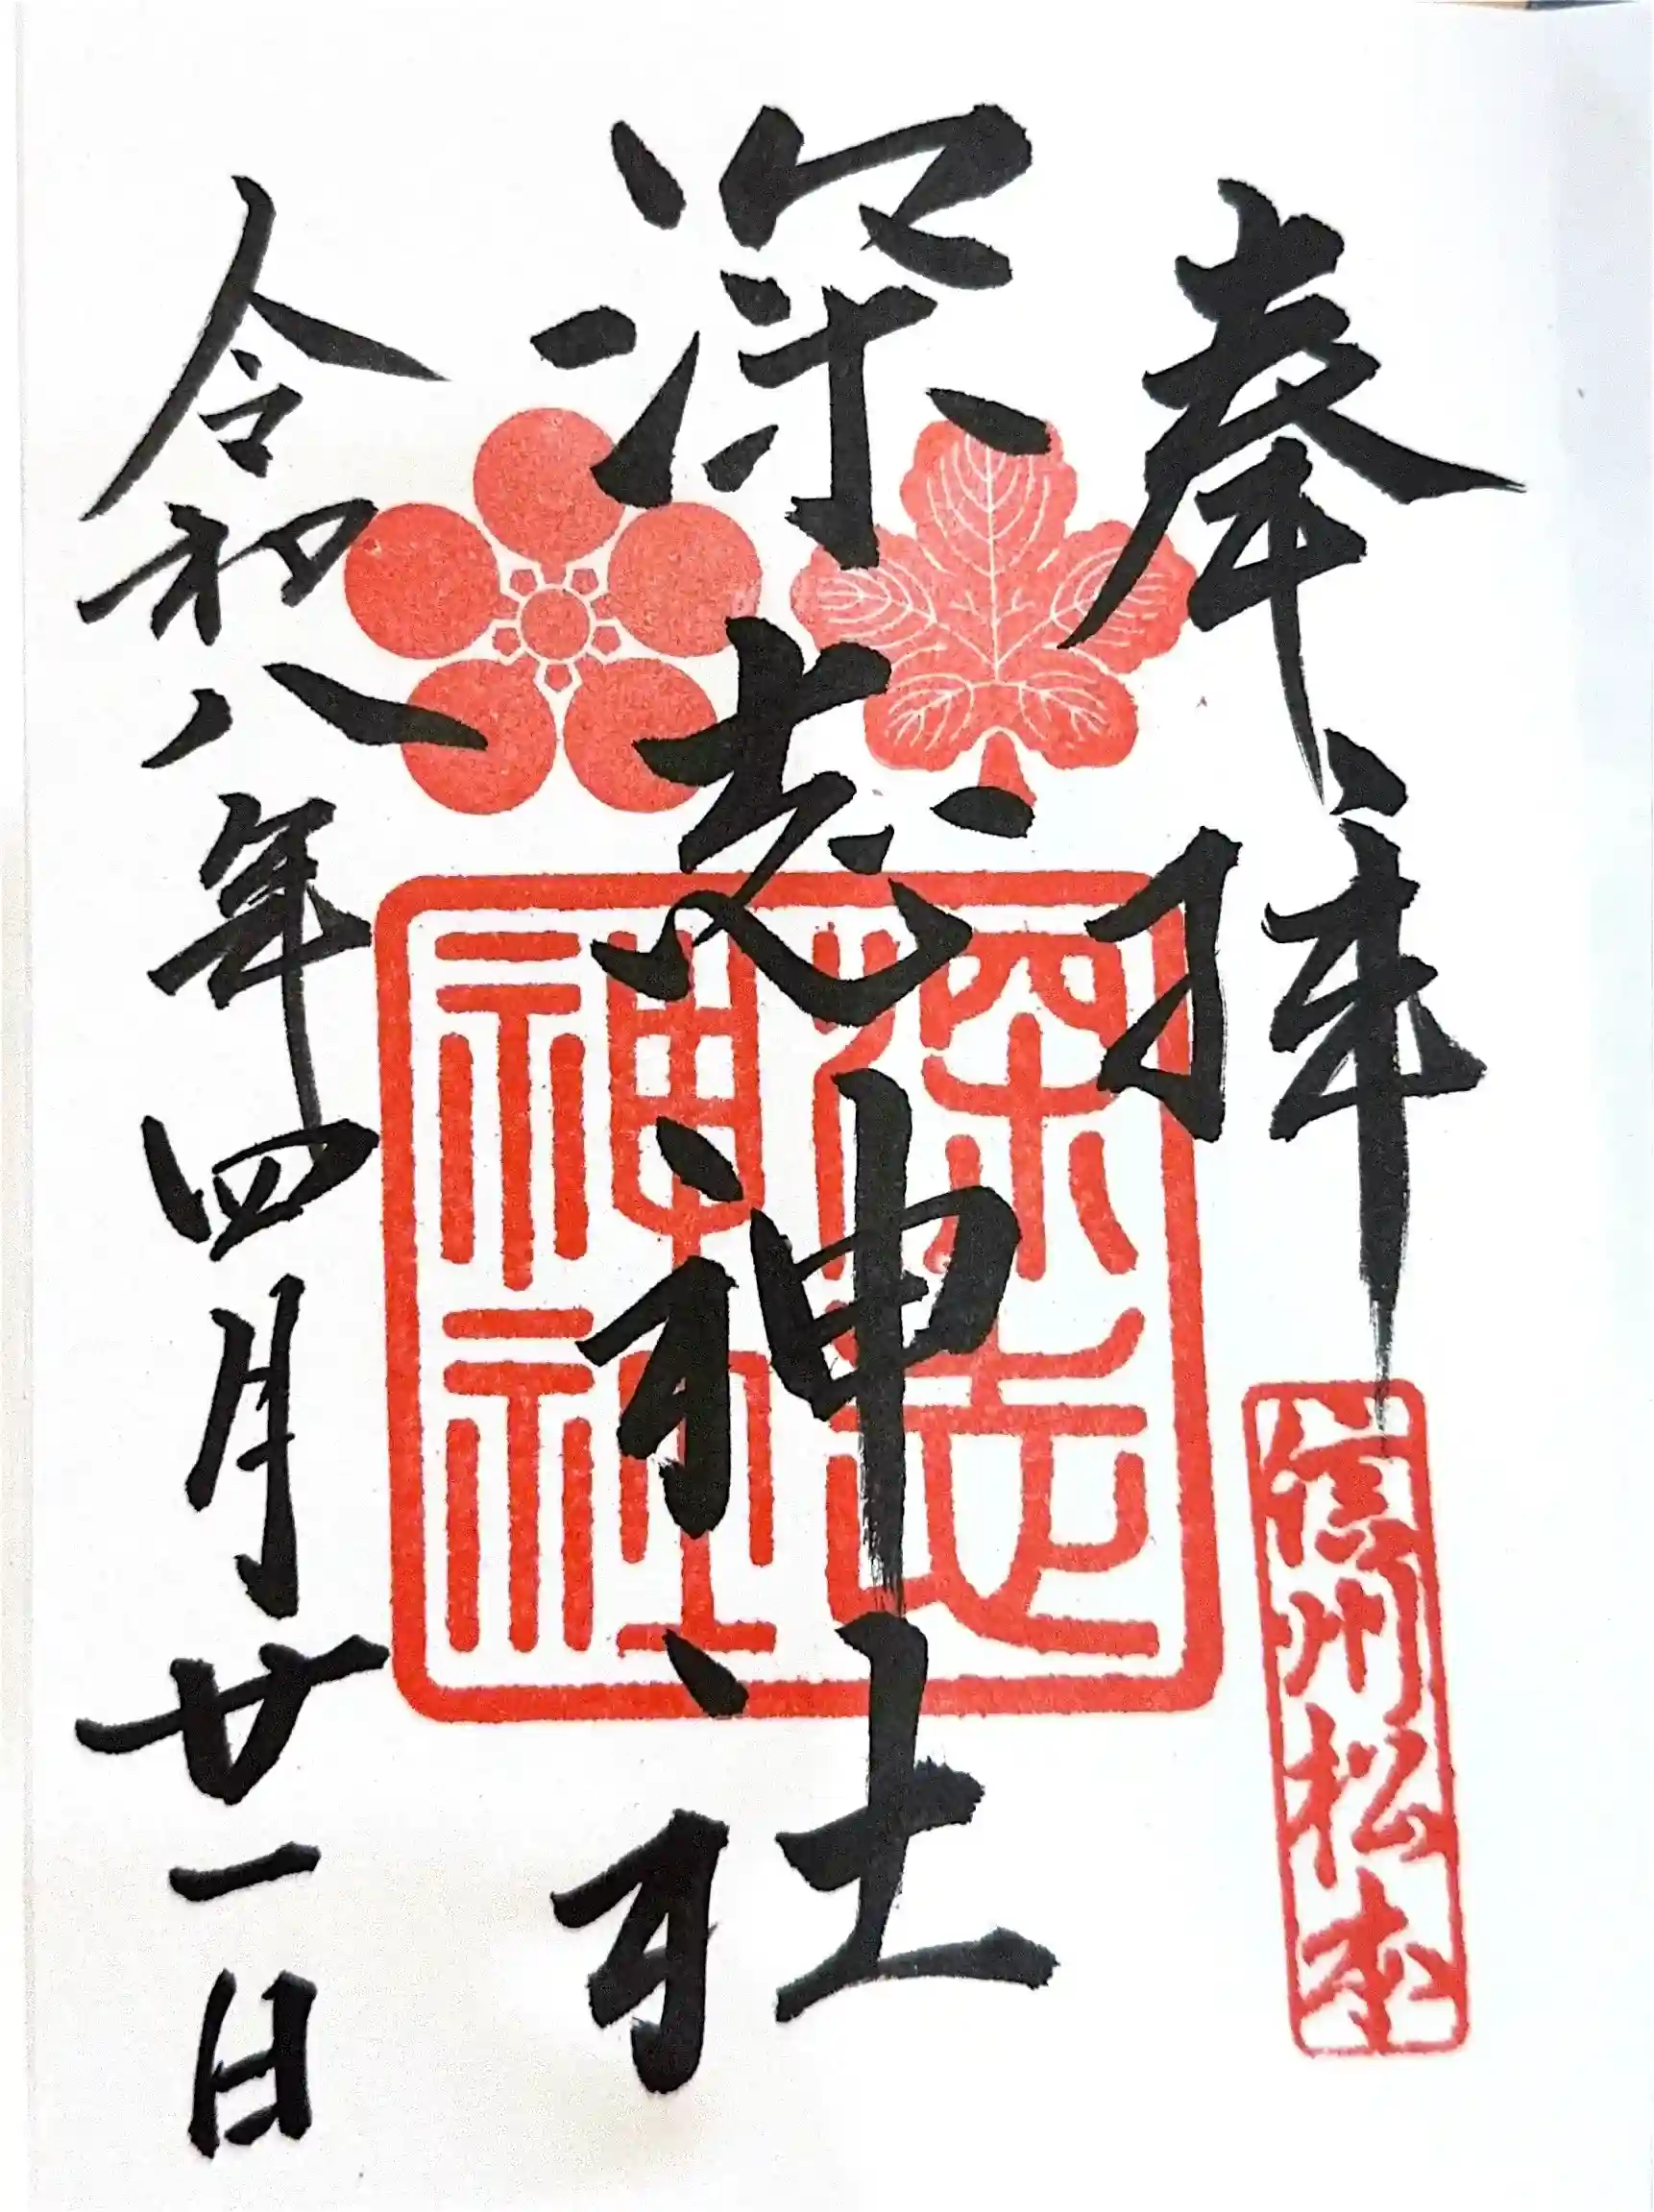 奉拝
信州松本
深志神社
深志神社
令和八年四月廿一日